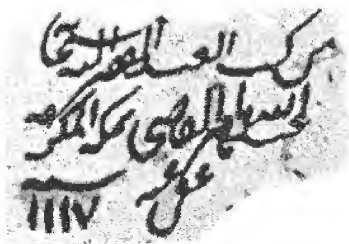 من كتب العبد الفقير اليه تعالى
القاضي بمكة المكرمة
عفي عنه
سنة
١١١٧